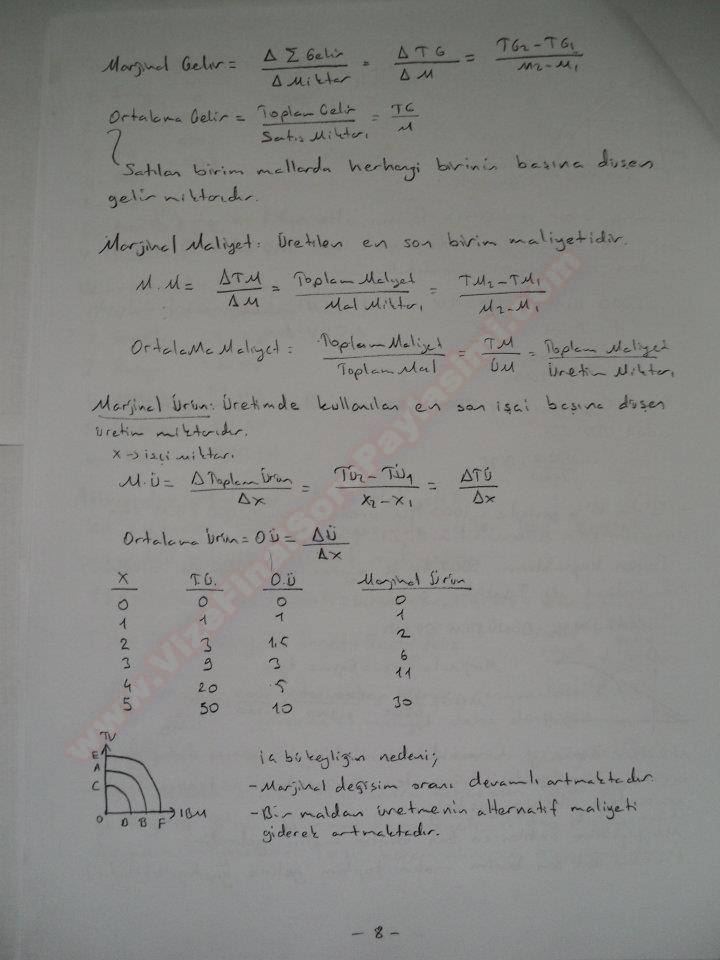 Marjinal Gelir = Δ Σ Gelir / Δ Miktar = Δ TG / Δ M = TG2 - TG1 / M2 - M1
Ortalama Gelir = Toplam Gelir / Satış Miktarı = TG / M
Satılan birim mallarda herhangi birinin başına düşen
gelir miktarıdır.
Marjinal Maliyet: Üretilen en son birim maliyetidir.
M.M = ΔTM / ΔM = Toplam Maliyet / Mal Miktarı = TM2 - TM1 / M2 - M1
Ortalama Maliyet = Toplam Maliyet / Toplam Mal = TM / ÜM = Toplam Maliyet / Üretim Miktarı
Marjinal Ürün: Üretimde kullanılan en son işçi başına düşen
üretim miktarıdır.
X → işçi miktarı
M.Ü = Δ Toplam Ürün / Δx = TÜ2 - TÜ1 / x2 - x1 = ΔTÜ / Δx
Ortalama Ürün = OÜ = ΔÜ / Δx
X T.G. O.Ü Marjinal Ürün
0 0 0 0
1 1 1 1
2 3 1,5 2
3 9 3 6
4 20 5 11
5 50 10 30
TV
E
A
C
0 D B F → IBM
iç bükeyliğin nedeni;
- Marjinal değişim oranı devamlı artmaktadır
- Bir maldan üretmenin alternatif maliyeti
giderek artmaktadır.
- 8 -
www.VizeFinalSoruPaylasimi.com